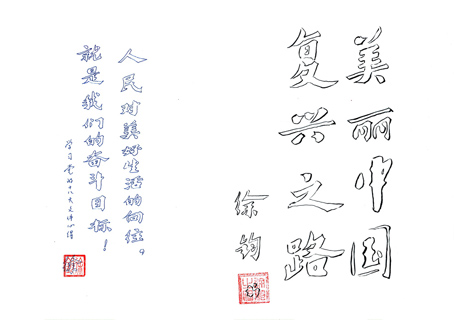 美丽中国
复兴之路
徐钧
人民对美好生活的向往。
就是我们的奋斗目标！
学习党的十八大文件心得